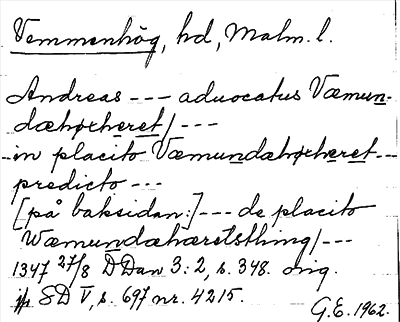 Vemmenhög, hd, Malm. l.
Andreas --- aduocatus Væmun-
dæhørheret/ ---
--in placito Væmundæhørheret---
predicto ---
[på baksidan:]--- de placito
Wæmundæhæretsthing/---
1347 27/8 DDan 3:2, s. 348. orig.
jfr SD V, s. 697 nr. 4215.
G.E. 1962.